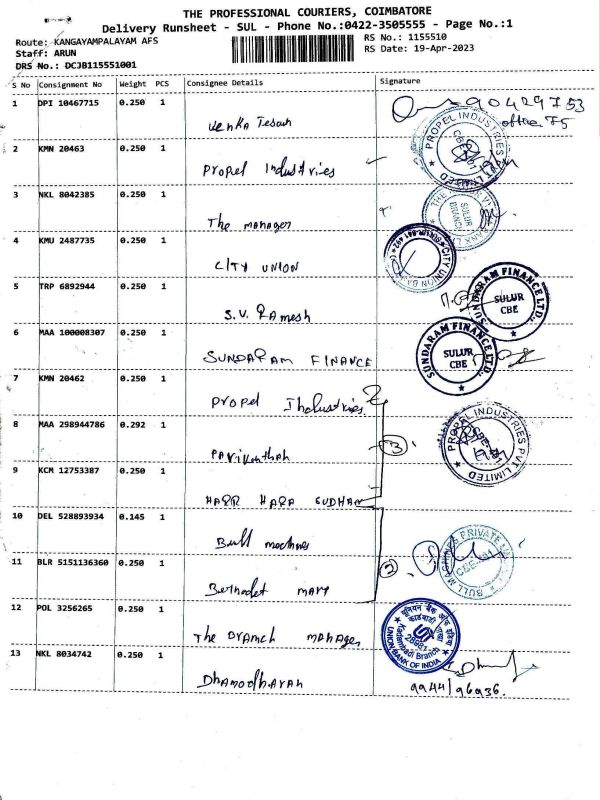 THE PROFESSIONAL COURIERS, COIMBATORE
Delivery Runsheet - SUL - Phone No.:0422-3505555 - Page No.:1
Route: KANGAYAMPALAYAM AFS
Staff: ARUN
DRS No.: DCJB115551001
RS No.: 1155510
RS Date: 19-Apr-2023
S No Consignment No Weight PCS Consignee Details Signature
1 DPI 10467715 0.250 1
Venkatesan
90429753
office 75
2 KMN 20463 0.250 1
Propel Industries
PROPEL INDUSTRIES PVT LIMITED
3 NKL 8042385 0.250 1
The manager
SULUR BRANCH
4 KMU 2487735 0.250 1
CITY UNION
CITY UNION
5 TRP 6892944 0.250 1
S.V. Ramesh
SUNDARAM FINANCE LTD.
SULUR
CBE
6 MAA 100008307 0.250 1
SUNDARAM FINANCE
SUNDARAM FINANCE LTD.
SULUR
CBE
7 KMN 20462 0.250 1
Propel Industries
8 MAA 298944786 0.292 1
Parikanthan
PROPEL INDUSTRIES PVT LIMITED
3
9 KCM 12753387 0.250 1
HARR HARA SUDHAN
10 DEL 528893934 0.145 1
Bull machines
BULL MACHINES PRIVATE
11 BLR 5151136360 0.250 1
Bernadet mary
2
12 POL 3256265 0.250 1
The Branch Manager
यूनियन बैंक ऑफ इंडिया
UNION BANK OF INDIA
13 NKL 8034742 0.250 1
Dhamodharan
9944196936.